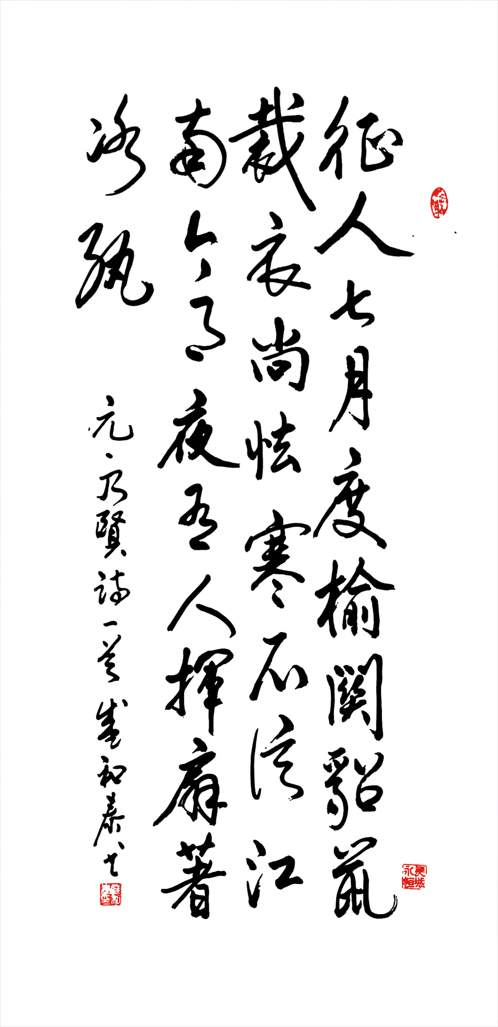 征人七月度榆關貂鼠
裁衣尚怯寒不信江
南今夜有人揮扇著
冰紈
元乃賢詩一首 和泰